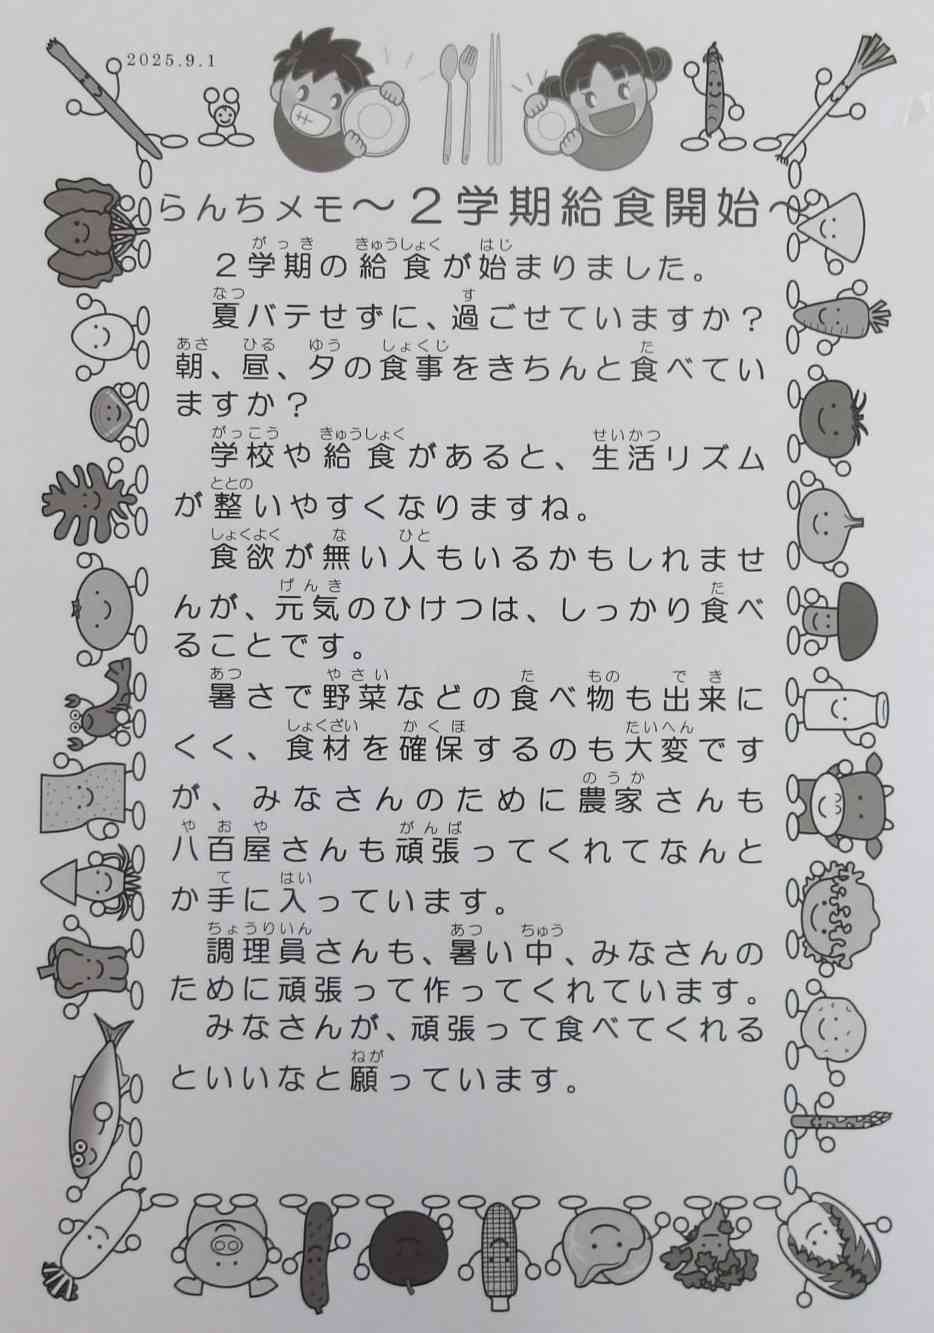 2025.9.1
らんちメモ～２学期給食開始～
がっき きゅうしょく はじ
２学期の給食が始まりました。
なつ す
夏バテせずに、過ごせていますか？
あさ ひる ゆう しょくじ た
朝、昼、夕の食事をきちんと食べてい
ますか？
がっこう きゅうしょく せいかつ
学校や給食があると、生活リズム
ととの
が整いやすくなりますね。
しょくよく な ひと
食欲が無い人もいるかもしれませ
げんき た
んが、元気のひけつは、しっかり食べ
ることです。
あつ やさい た もの でき
暑さで野菜などの食べ物も出来に
しょくざい かくほ たいへん
くく、食材を確保するのも大変です
のうか
が、みなさんのために農家さんも
やおや がんば
八百屋さんも頑張ってくれてなんと
て はい
か手に入っています。
ちょうりいん あつ ちゅう
調理員さんも、暑い中、みなさんの
ために頑張って作ってくれています。
みなさんが、頑張って食べてくれる
ねが
といいなと願っています。